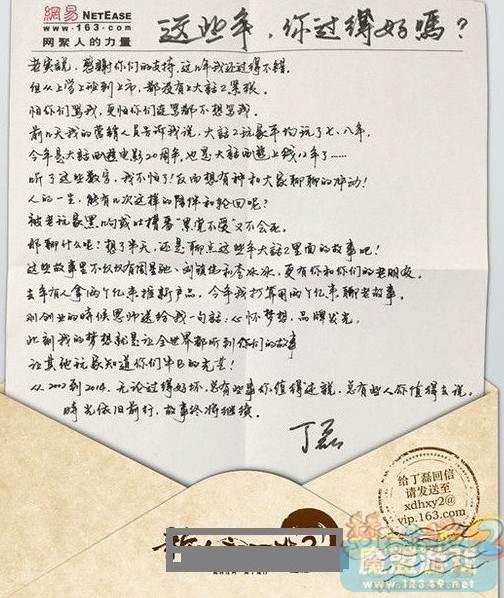 網易 NETEASE
www.163.com
网聚人的力量
这些年，你过得好嗎？
老实说，感谢你们的支持，这几年我还过得不错。
但从上学上班到上市，都没有上大话2紧张。
怕你们骂我，更怕你们连骂都不想骂我。
前几天我的营销人员告诉我说，大话2玩家平均玩了七、八年。
今年是大话西游电影20周年，也是大话西游上线12年了……
听了这些数字，我不怕了！反而想有种和大家聊聊的冲动！
人的一生，能有几次这样的陪伴和轮回呢？
被老玩家黑几句或吐槽着“黑觉不爱”又不会死。
好聊什么呢！想了半天，还是聊点这些年大话2里面的故事吧！
这些故事里不仅仅有周星驰、刘镇伟和李冰冰，更有你和你们的老朋友。
去年有人拿两个亿来推新产品，今年我打算用两个亿来聊老故事。
刚创业的时候恩师送给我一句话：心怀梦想，品牌发光。
此刻我的梦想就是让全世界都听到你们的故事
让其他玩家知道你们牛B的光芒！
从2002到2014，无论过得好坏，总有些事你值得还说，总有些人你值得去说。
時光依旧前行，故事终将继续。
丁磊
给丁磊回信
请发送至
xdhxy2@
vip.163.com
www.12349.net